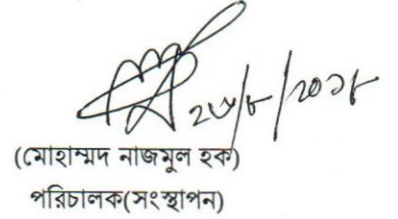 ২৬/৮/২০১৮
(মোহাম্মদ নাজমুল হক)
পরিচালক(সংস্থাপন)